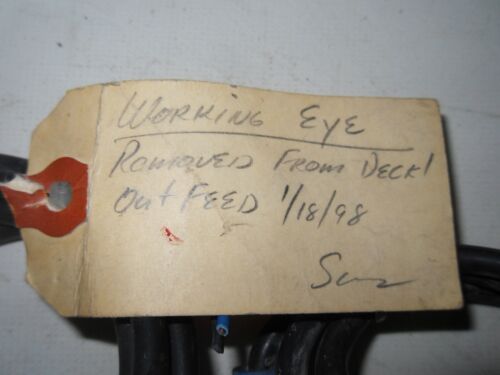 Working Eye
Removed From Deck 1
Out Feed 1/18/98